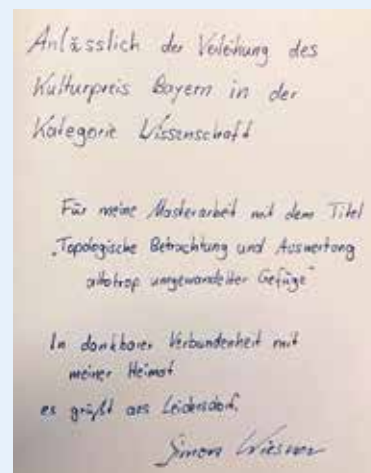 Anlässlich der Verleihung des
Kulturpreis Bayern in der
Kategorie Wissenschaft
Für meine Masterarbeit mit dem Titel
„Topologische Betrachtung und Auswertung
allotrop umgewandelter Gefüge“
In dankbarer Verbundenheit mit
meiner Heimat
es grüßt aus Leidersdorf.
Simon Wiesner